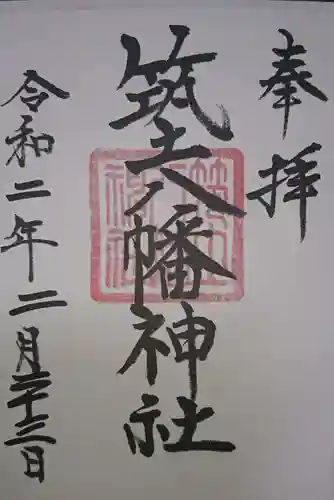 奉拝
筑土八幡神社
令和二年二月二十三日